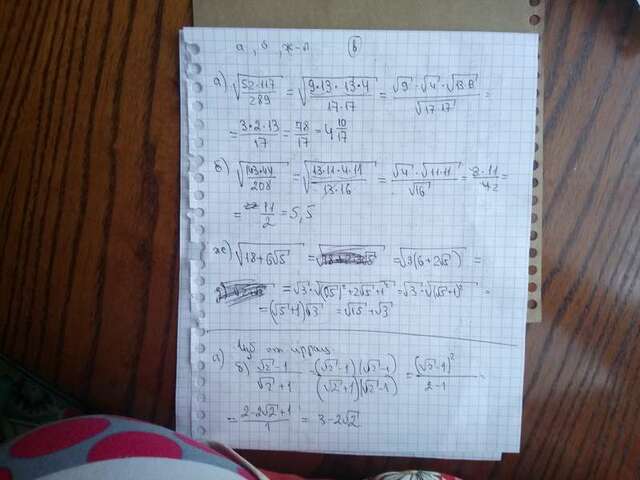 а, б, ж-л (в)
а) √(52·117/289) = √(9·13·13·4/17·17) = √9·√4·√13·13/√17·17 =
= 3·2·13/17 = 78/17 = 4 10/17
б) √(143·44/208) = √(13·11·4·11/13·16) = √4·√11·11/√16 = 2·11/4 =
= 11/2 = 5,5
ж) √(18+6√5) = = √(3(6+2√5)) =
= √3·√((√5)²+2√5+1²) = √3·√(√5+1)² =
= (√5+1)√3 = √15+√3
а) от иррац.
б) √2-1/√2+1 = (√2-1)(√2-1)/(√2+1)(√2-1) = (√2-1)²/2-1 =
= 2-2√2+1/1 = 3-2√2